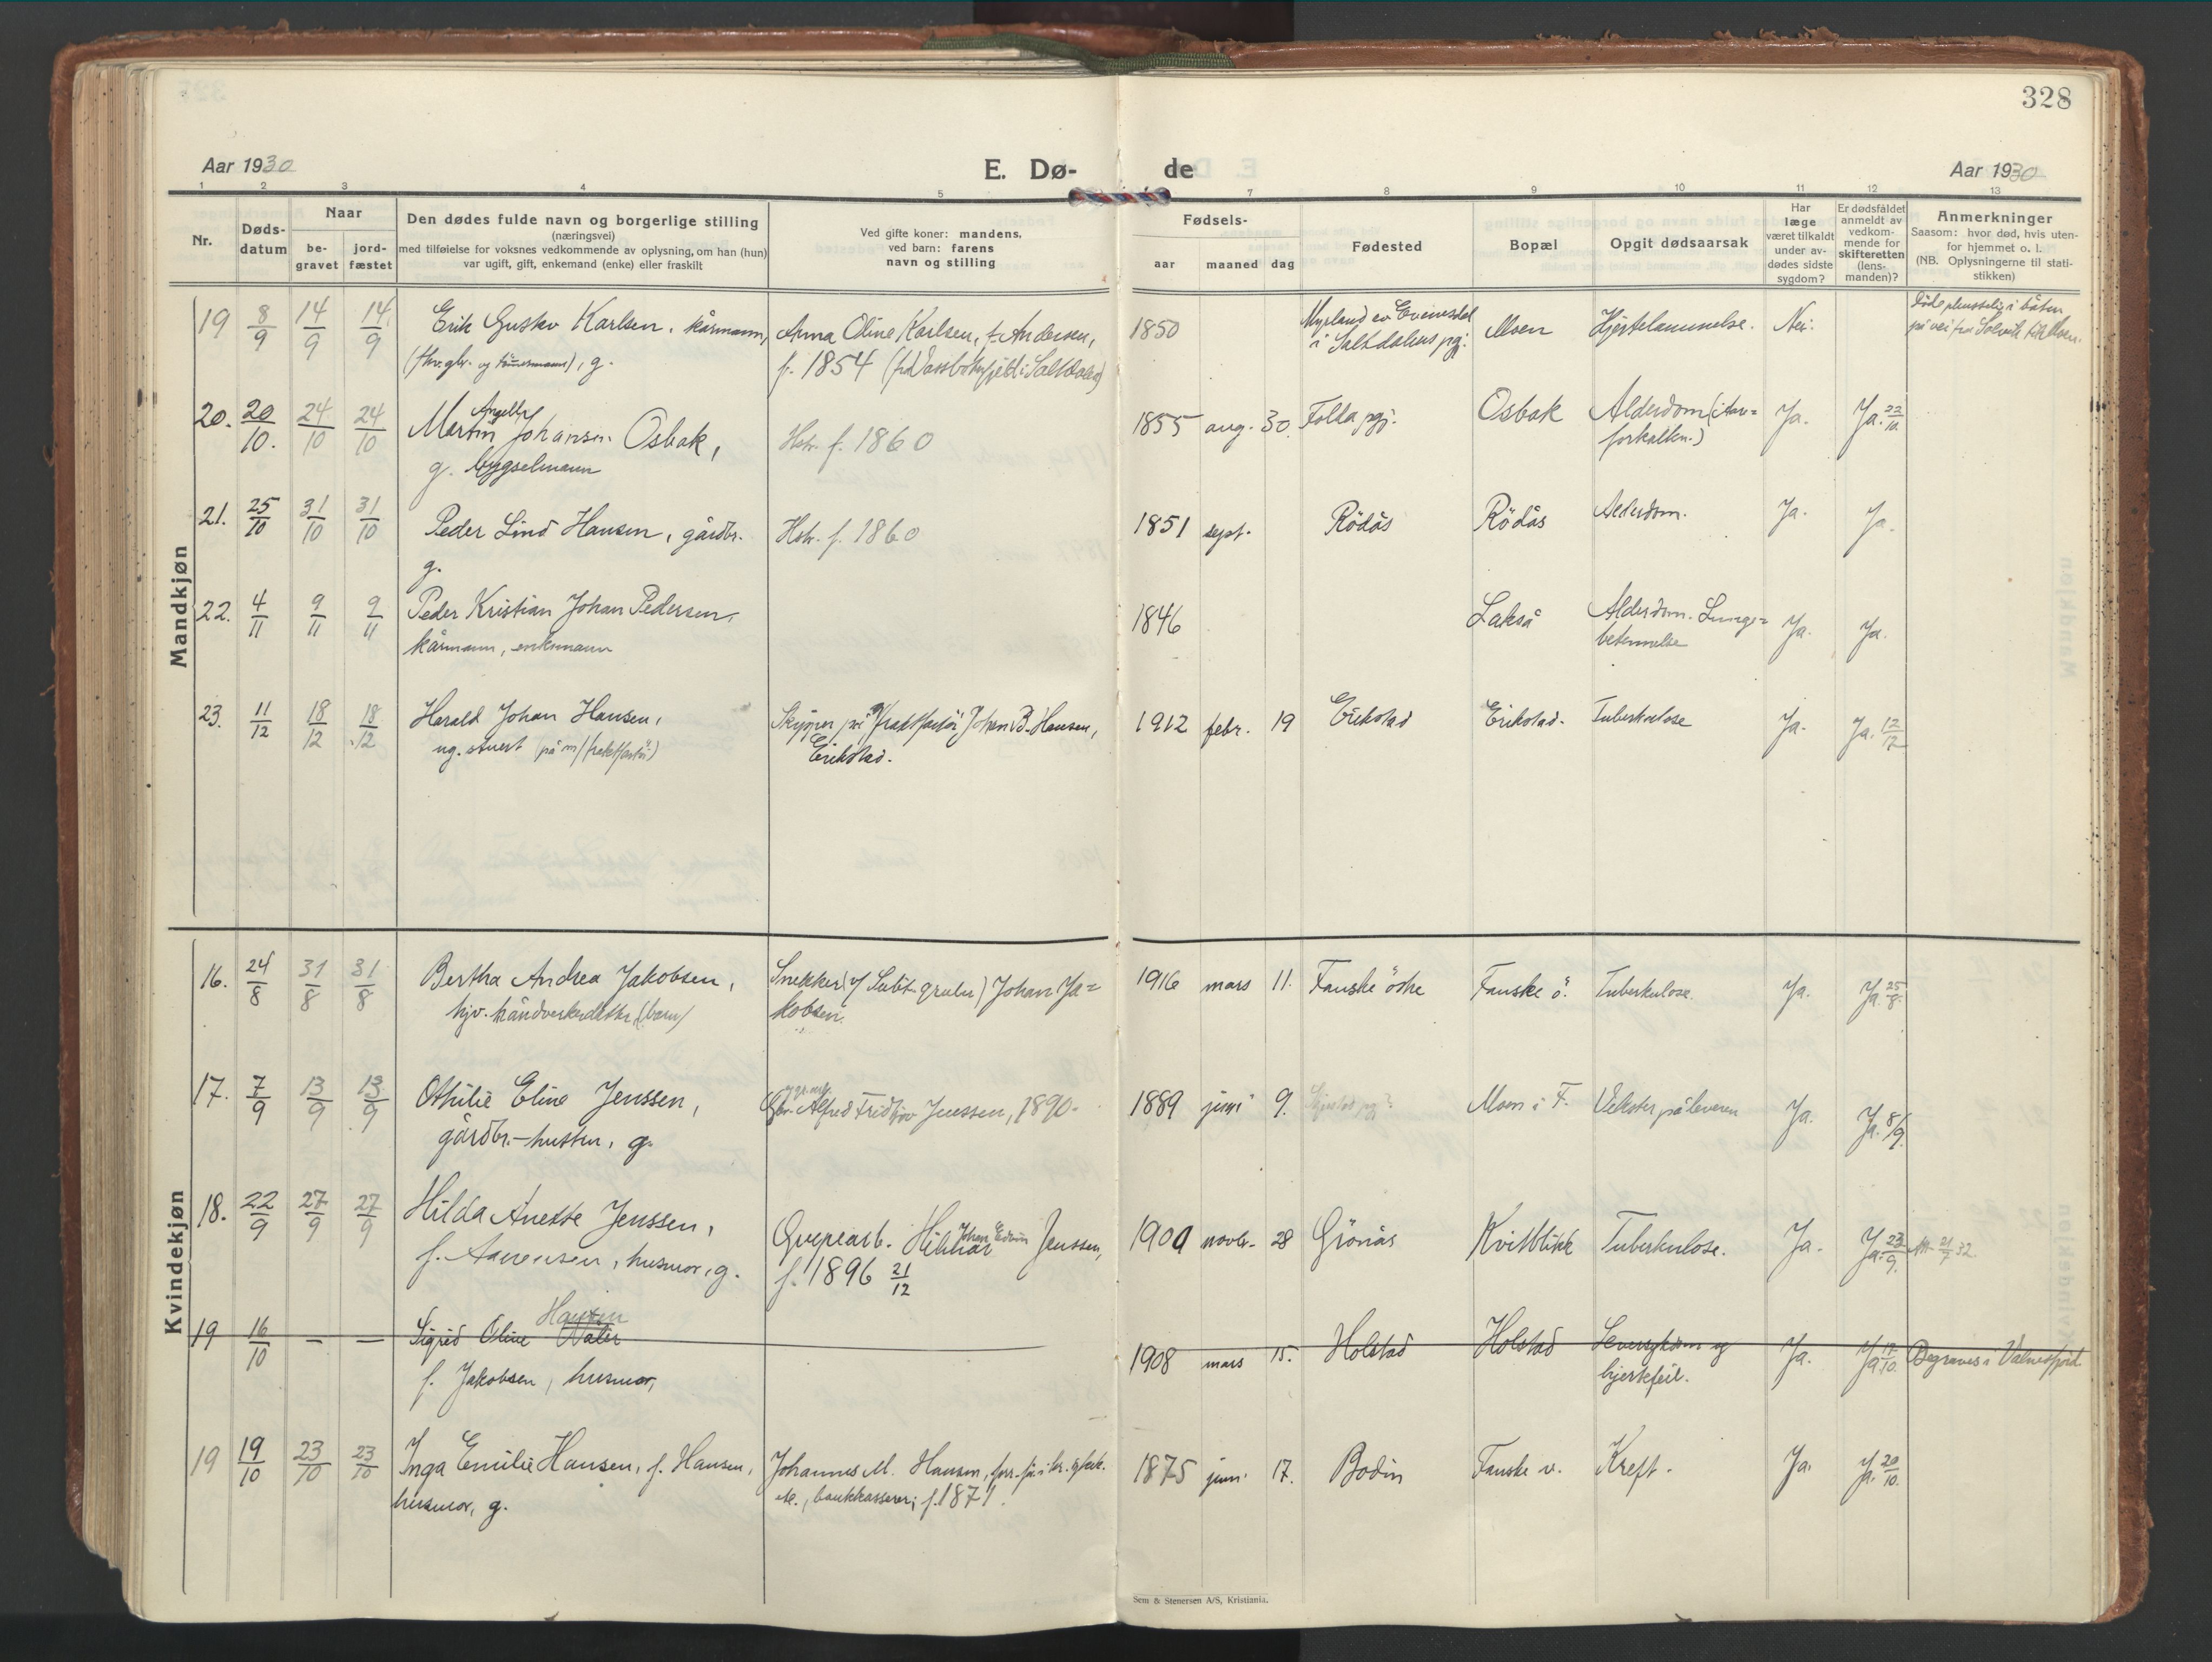 328
Aar 1930
E. Dø-
de
Aar 1930
1 2 3 4 5 7 8 9 10 11 12 13
Nr.
Døds-
datum
Naar
be-
gravet
jord-
fæstet
Den dødes fulde navn og borgerlige stilling
(næringsvei)
med tilføielse for voksnes vedkommende av oplysning, om han (hun)
var ugift, gift, enkemand (enke) eller fraskilt
Ved gifte koner: mandens,
ved barn: farens
navn og stilling
Fødsels-
aar maaned dag
Fødested
Bopæl
Opgit dødsaarsak
Har
læge
været tilkaldt
under av-
dødes sidste
sygdom?
Er dødsfaldet
anmeldt av
vedkom-
mende for
skifteretten
(lens-
manden)?
Anmerkninger
Saasom: hvor død, hvis uten-
for hjemmet o. l.
(NB. Oplysningerne til stati-
stikken)
Mandkjøn
19 8/9 14/9 14/9 Erik Gustav Karlsen, kårmann,
(fhv. gbr. og tömmermann), g.
Anna Oline Karlsen, f. Andersen,
f. 1854
1850
Myrland av Evenesdal
i Saltdalens pgj.
Moen
Hjertelammelse.
Nei.
Døde plutselig i båten
på vei fra Solvik til Moen.
20. 20/10. 24/10 24/10 Martin Angell Johansen Osbak,
g. bygselmann
Hstr. f. 1860
1855 aug. 30. Folla pgj. Osbak
Alderdom (Aare-
forkalkn.)
Ja. Ja. 22/10.
21. 25/10 31/10 31/10 Peder Lind Hansen, gårdbr.
g.
Hstr. f. 1860
1851 sept. Rödås Rödås Alderdom. Ja. Ja.
22. 4/11 9/11 9/11 Peder Kristian Johan Pedersen,
kårmann, enkemann
1846 Lakså
Alderdom. Lunge-
betennelse
Ja. Ja.
23. 11/12 18/12 18/12 Harald Johan Hansen,
ug. stuert (på m/fraktfartöi)
Skipper på m/fraktfartöi Johan B. Hansen,
Erikstad.
1912 febr. 19 Erikstad Erikstad. Tuberkulose Ja. Ja. 12/12
Kvindekjøn
16. 24/8 31/8 31/8 Bertha Andrea Jakobsen,
hjv. håndverkerdatter, (barn)
Snekker (v/ Sulit. gruber) Johan Ja-
kobsen.
1916 mars 11. Fauske östre Fauske ö. Tuberkulose. Ja. Ja. 25/8.
17. 7/9 13/9 13/9 Othilie Eline Jenssen,
gårdbr.-hustru, g.
Gbr. Alfred Fridtjov Jenssen, 1890.
1889 juni 9. Moen i F. Vekster på leveren Ja. Ja. 8/9.
18. 22/9 27/9 27/9 Hilda Anette Jenssen,
f. Aanensen, husmor, g.
Gruvearb. Hilmar Johan Edvin Jenssen,
f. 1896 21/12
1900 novbr. 28 Grönås Kvitblikk Tuberkulose. Ja. Ja. 23/9. Att. 21/7 32.
19 16/10 — — Sigrid Oline Hansen
f. Jakobsen, husmor,
1908 mars 15. Holstad Holstad
Leversykdom og
hjertefeil.
Ja. Ja 17/10. Begraves i Valnesfjord
19 19/10 23/10 23/10 Inga Emilie Hansen, f. Hansen,
husmor, g.
Johannes M. Hansen,
bankkasserer, f. 1871.
1875 juni 17. Bodin Fauske v. Kreft. Ja. Ja. 20/10.
Sem & Stenersen A/S, Kristiania.